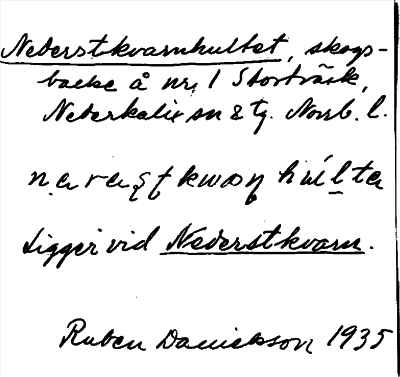 Nederstkvarnhultet, skogs-
backe å nr 1 Storträsk,
Nederkalix sn & tg. Norrb. l.
Ligger vid Nederstkvarn.
Ruben Danielsson 1935